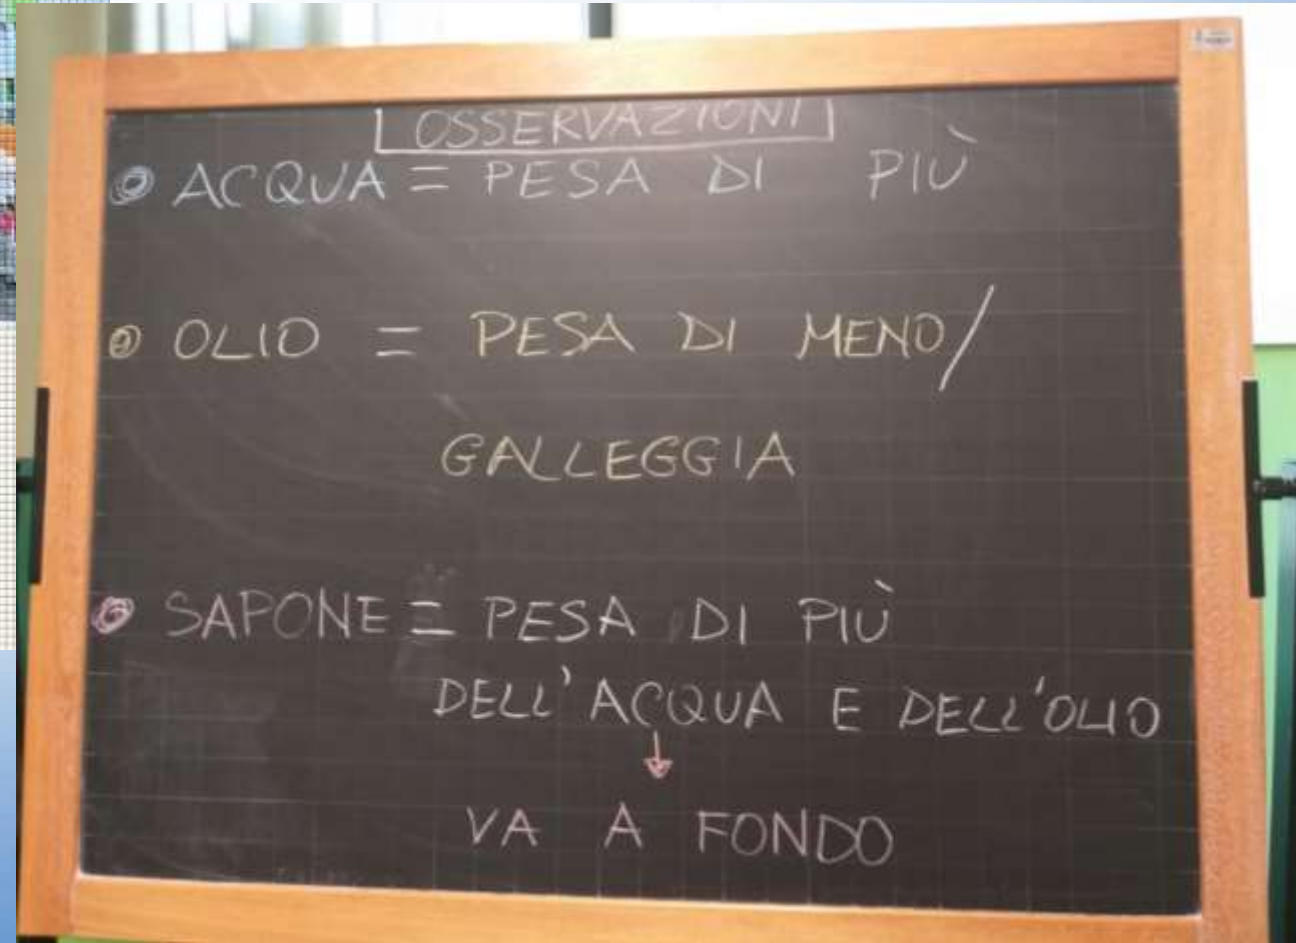 OSSERVAZIONI
ACQUA = PESA DI PIÙ
OLIO = PESA DI MENO/
GALLEGGIA
SAPONE = PESA DI PIÙ
DELL'ACQUA E DELL'OLIO
↓
VA A FONDO